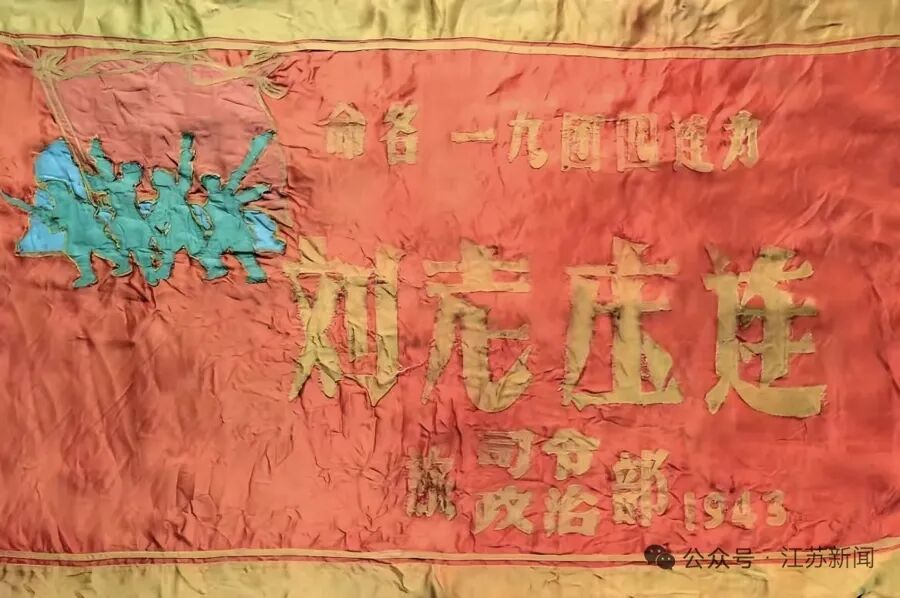 命名 一九团四连为
刘老庄连
旅 司令
政治 部 1943
公众号·江苏新闻